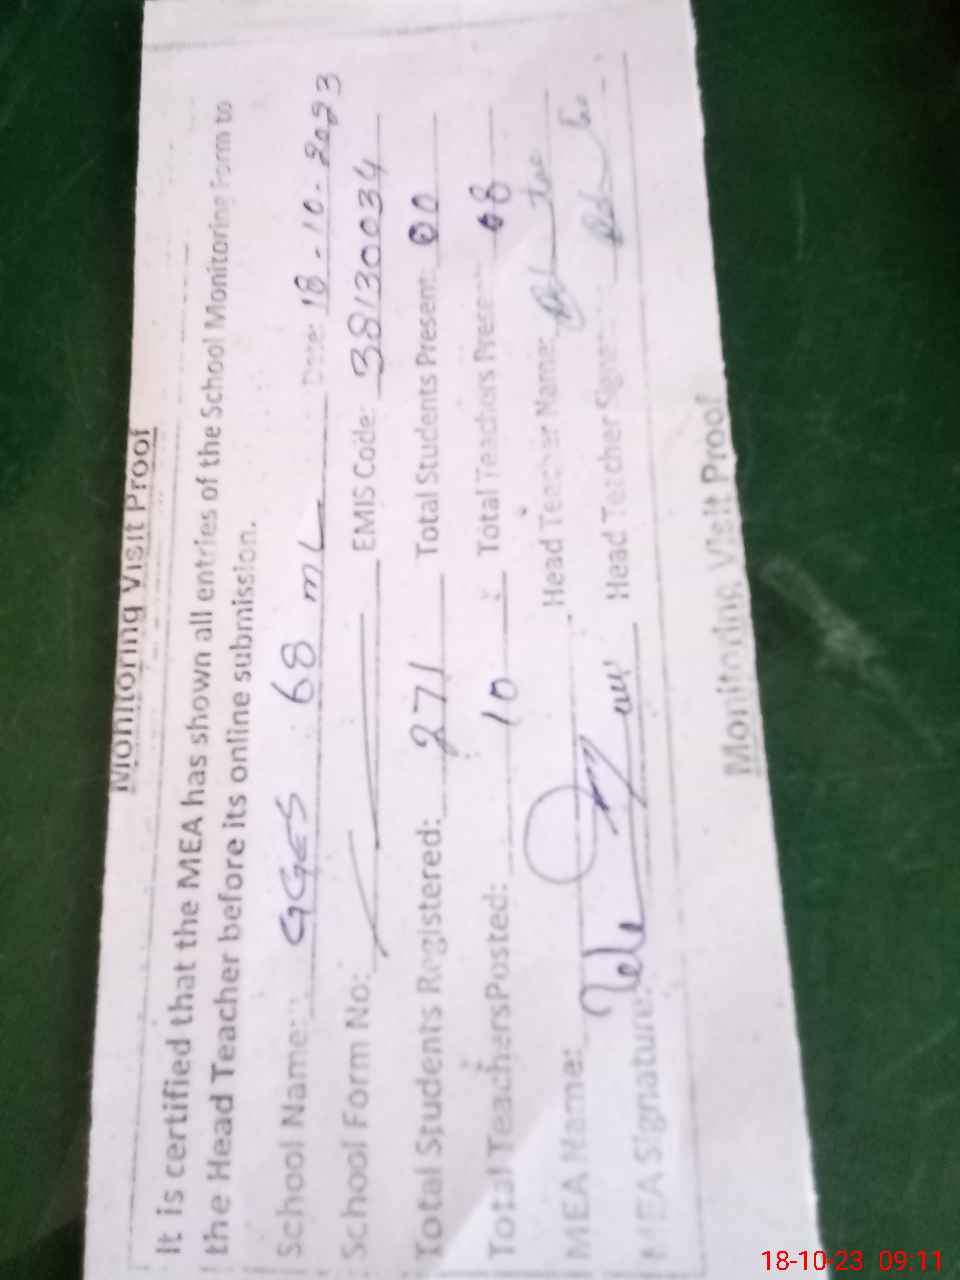 Monitoring Visit Proof
It is certified that the MEA has shown all entries of the School Monitoring Form to
the Head Teacher before its online submission.
School Name: GGES 68 ML Date: 18-10-2023
School Form No: EMIS Code: 38130034
Total Students Registered: 271 Total Students Present: 00
Total Teachers Posted: 10 Total Teachers Present: 08
MEA Name: Head Teacher Name:
MEA Signature: Head Teacher Signature:
Monitoring Visit Proof
18-10-23 09:11